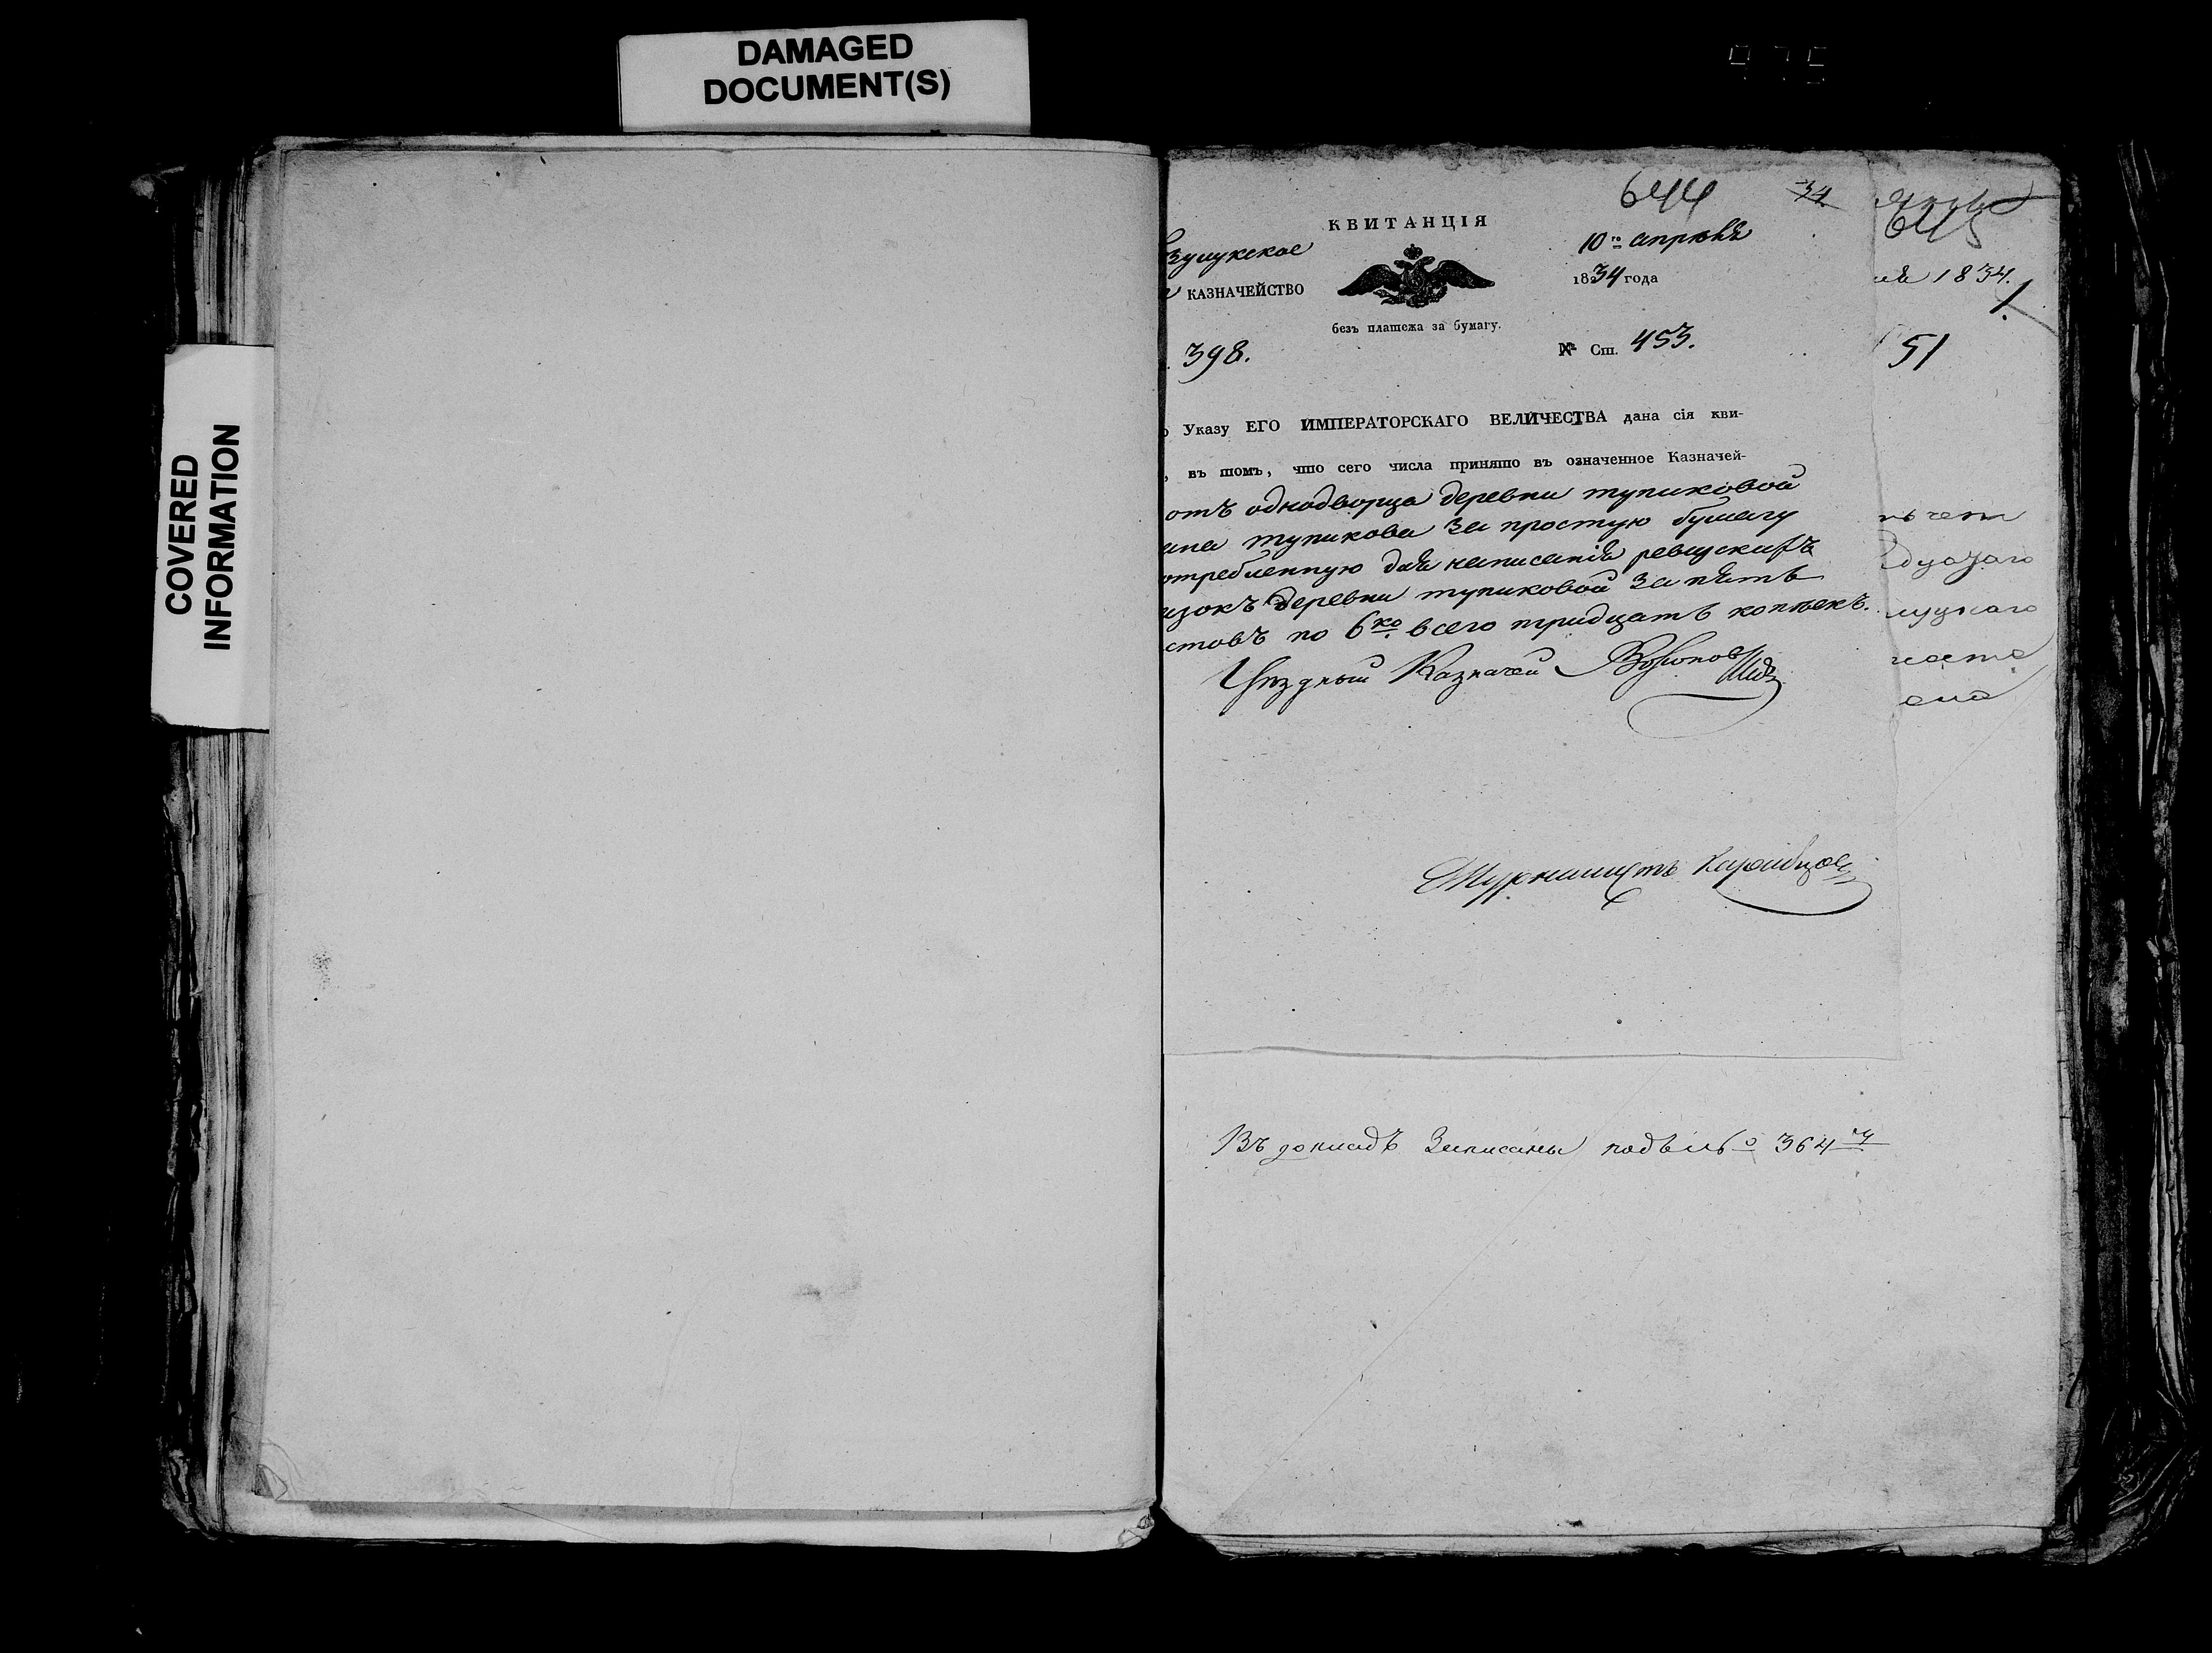 DAMAGED
DOCUMENT(S)
COVERED
INFORMATION
644
34
645
КВИТАНЦІЯ
зулукское
10го апрѣля
КАЗНАЧЕЙСТВО
1834 года
ля 1834.
1.
безъ платежа за бумагу.
398.
№ Ст. 453.
51
о Указу ЕГО ИМПЕРАТОРСКАГО ВЕЛИЧЕСТВА дана сія кви-
, въ томъ, что сего числа принято въ означенное Казначей-
отъ однодворца деревни тупиковой
ана тупикова за простую бумагу
отребленную для написанія ревизскихъ
азокъ деревни тупиковой за пять
стовъ по 6ко всего тридцать копѣекъ.
Уѣздный Казначей
Журналистъ
Въ докладъ Записаны подъ 364